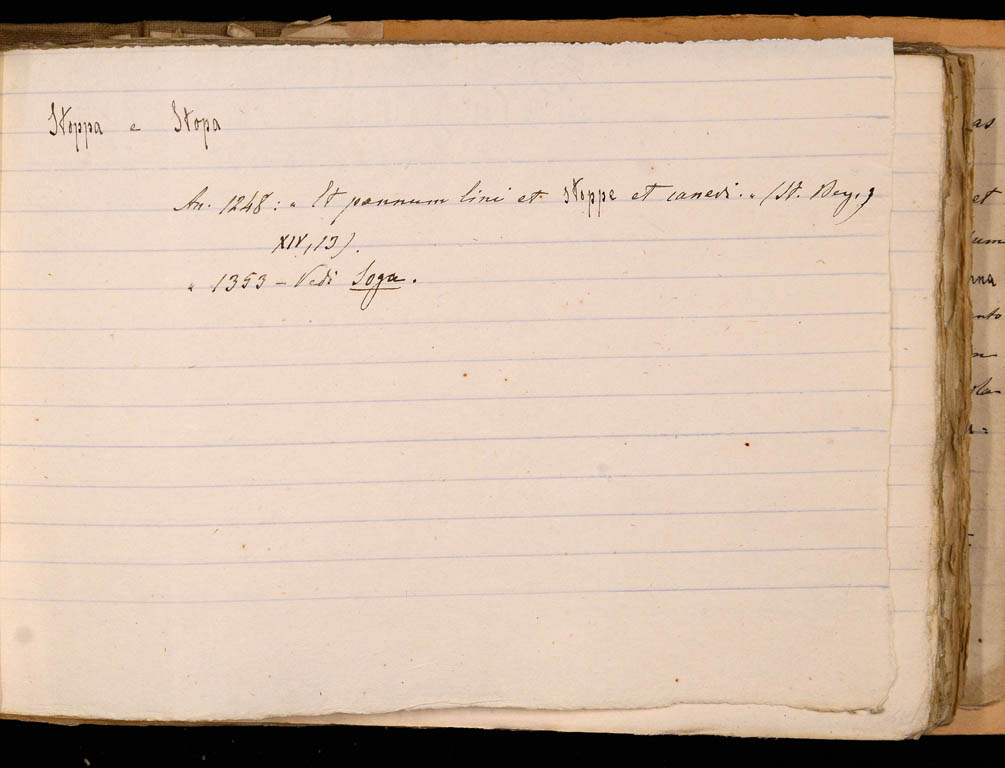 Stoppa e Stopa
An. 1248: „ Et pannum lini et stoppe et canevi. „ (St. Bey.,
XIV, 13).
„ 1353 – Vedi Soga.
as
et
nna
ento